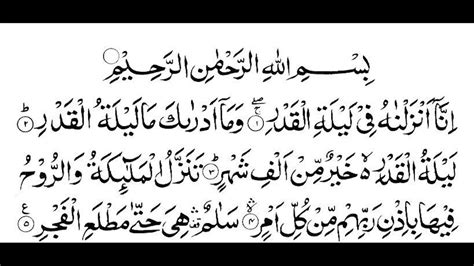 بِسْمِ اللهِ الرَّحْمٰنِ الرَّحِيْمِ
اِنَّاۤ اَنْزَلْنٰهُ فِيْ لَيْلَةِ الْقَدْرِ ۚۖ‏﴿۱﴾ وَمَاۤ اَدْرٰىكَ مَا لَيْلَةُ الْقَدْرِ ؕ‏﴿۲﴾
لَيْلَةُ الْقَدْرِ ۙ خَيْرٌ مِّنْ اَلْفِ شَهْرٍ ؕ‏﴿۳﴾ تَنَزَّلُ الْمَلٰٓئِكَةُ وَالرُّوْحُ
فِيْهَا بِاِذْنِ رَبِّهِمْ مِّنْ كُلِّ اَمْرٍ ۛ‏﴿۴﴾ سَلٰمٌ ۛ هِيَ حَتّٰى مَطْلَعِ الْفَجْرِ ‏﴿۵﴾ ع